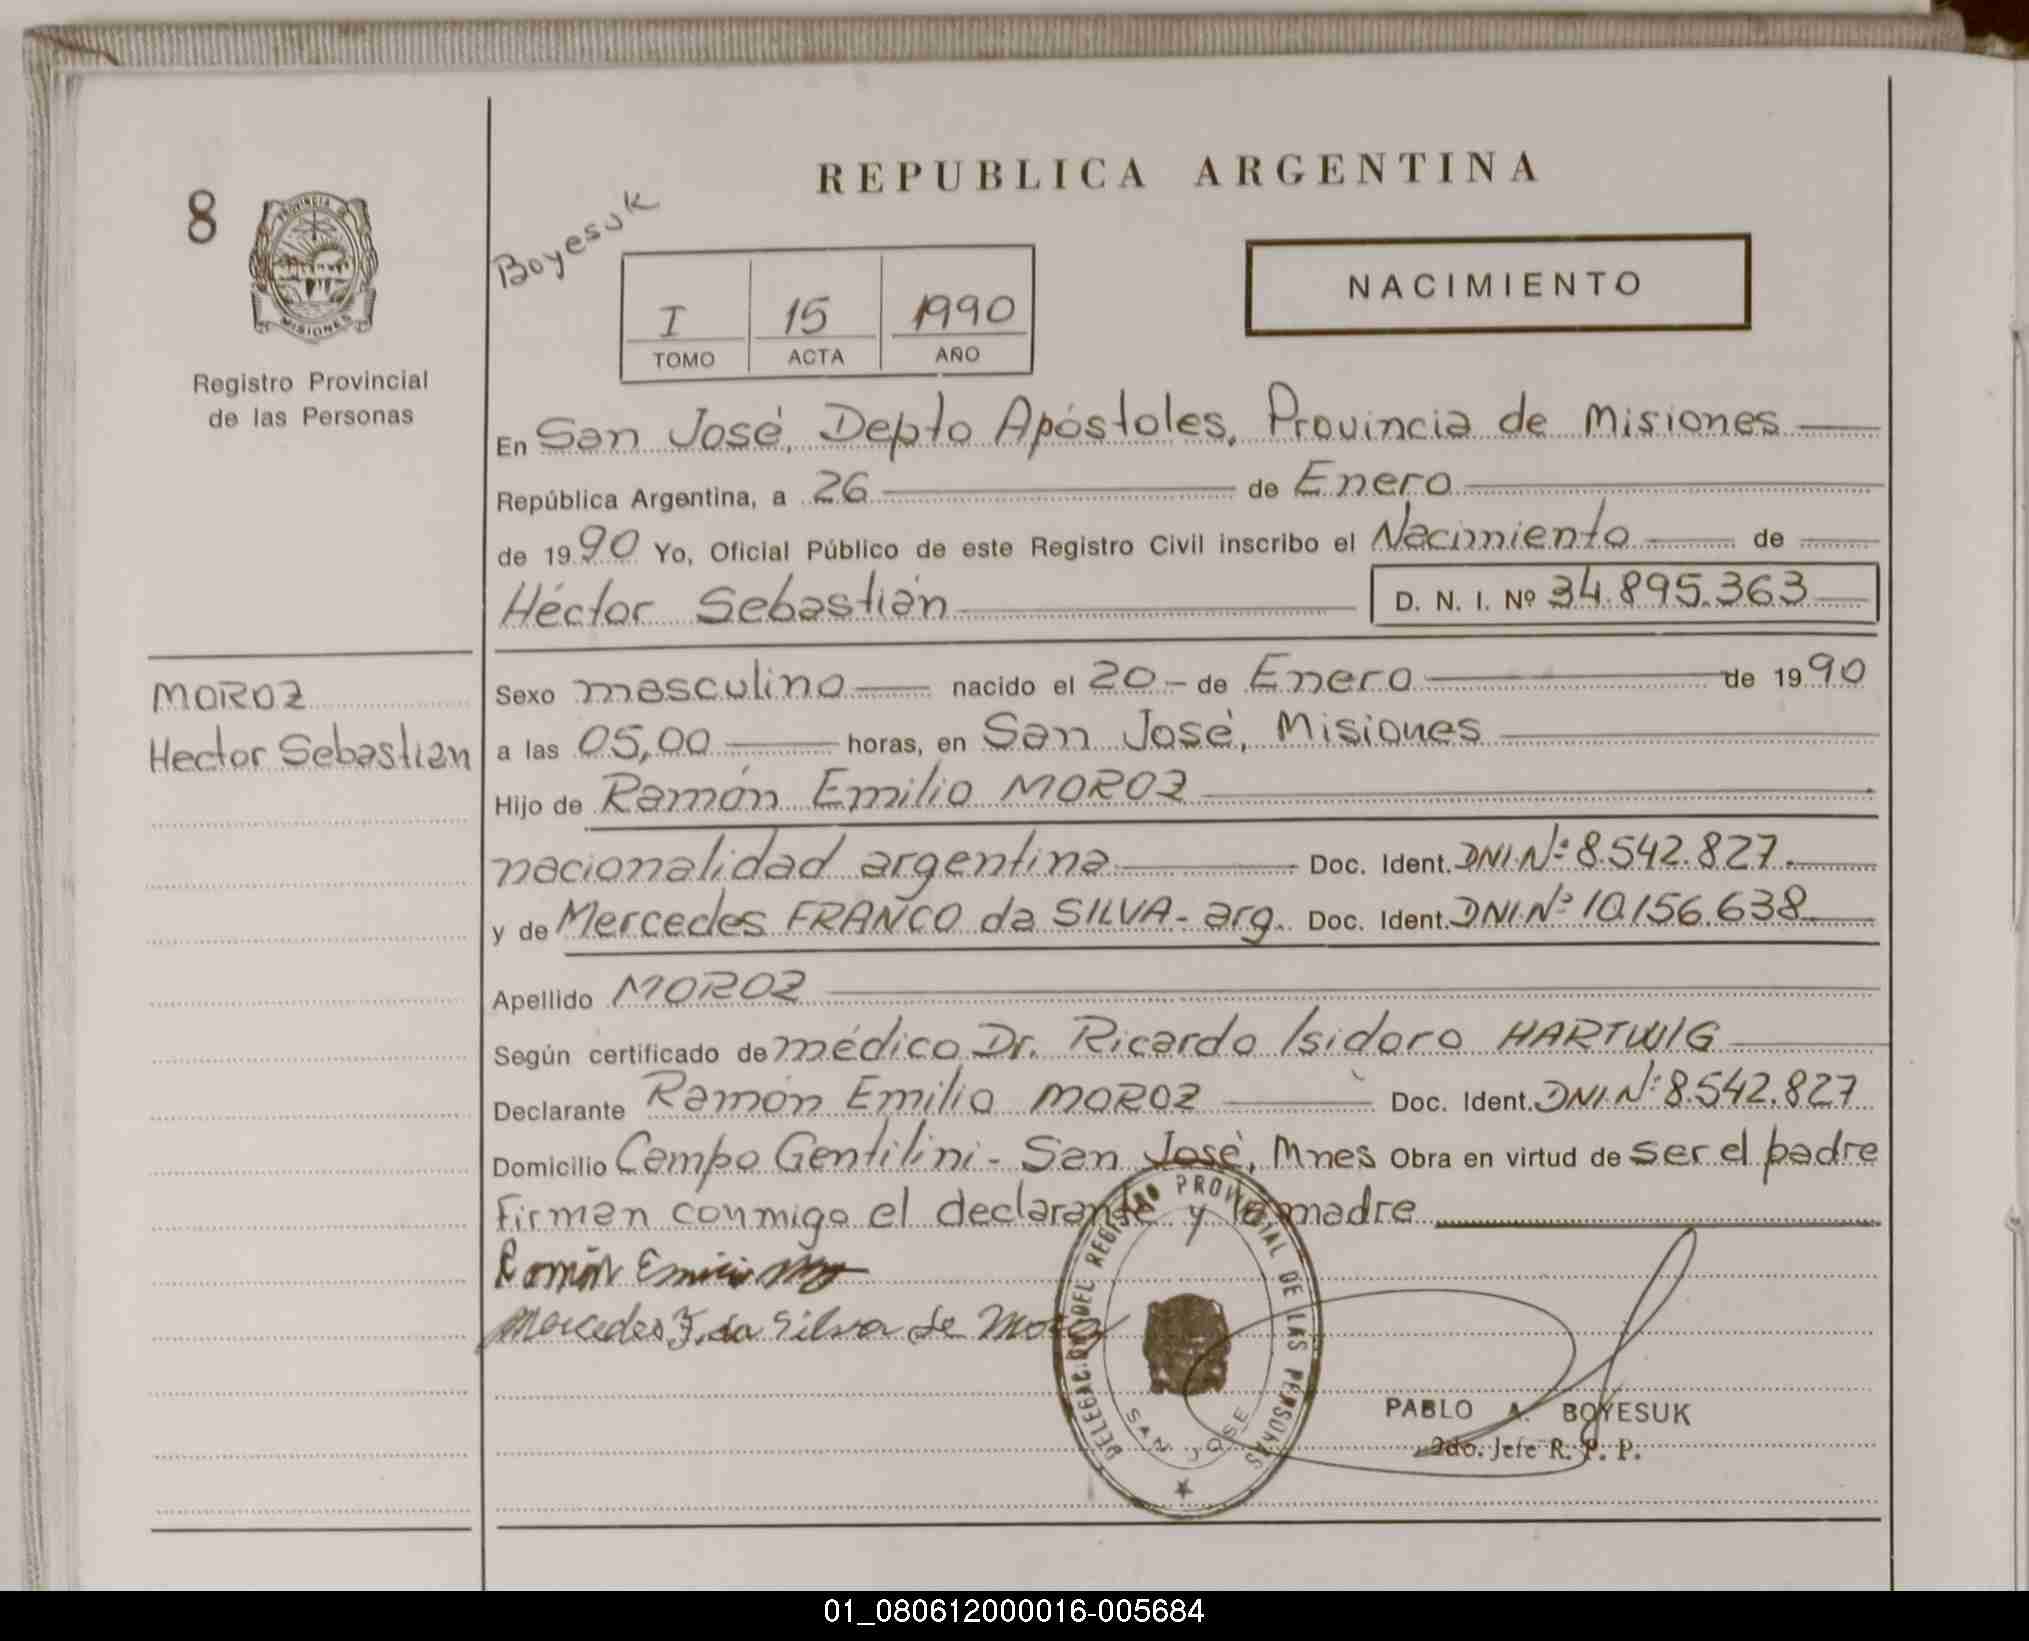 REPUBLICA ARGENTINA
8
PROVINCIA DE
MISIONES
Registro Provincial
de las Personas
Boyesuk
I 15 1990
TOMO ACTA AÑO
NACIMIENTO
En San José, Depto Apóstoles, Provincia de Misiones
República Argentina, a 26 de Enero
de 1990 Yo, Oficial Público de este Registro Civil inscribo el Nacimiento de
Héctor Sebastián D. N. I. Nº 34.895.363
MOROZ
Hector Sebastian
Sexo masculino nacido el 20 - de Enero de 1990
a las 05,00 horas, en San José, Misiones
Hijo de Ramón Emilio MOROZ
nacionalidad argentina Doc. Ident. DNI.Nº 8.542.827.
y de Mercedes FRANCO da SILVA - arg. Doc. Ident. DNI.Nº 10.156.638
Apellido MOROZ
Según certificado de médico Dr. Ricardo Isidoro HARTWIG
Declarante Ramón Emilio MOROZ Doc. Ident. DNI.Nº 8.542.827
Domicilio Campo Gentilini - San José, Mnes Obra en virtud de ser el padre
Firman conmigo el declarante y la madre
Ramón Emilio
Mercedes F. da Silva de Moroz
DELEGACION DEL REGISTRO PROVINCIAL DE LAS PERSONAS
SAN JOSE
PABLO A. BOYESUK
2do. Jefe R. P. P.
01_080612000016-005684